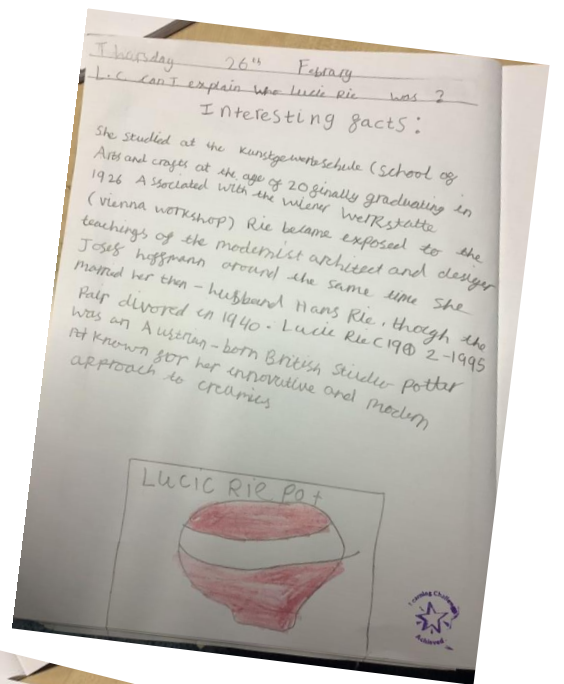 Thursday 26th Febrary
L.C. can I explain who Lucie Rie was ?
Interesting facts :
She studied at the Kunstgewerbeschule (School of
Arts and crafts at the age of 20 finally graduating in
1926 Associated with the wiener WerKstatte
(vienna workshop) Rie became exposed to the
teachings of the modernist architect and desiger
Josef hoffmann around the same time she
married her then - husband Hans Rie, thogh the
Pair divored in 1940. Lucie Rie (1902-1995
was an Austrian-born British Studio pottar
Pot known for her innovative and modern
approach to creamics
LUCIC RIE Pot
Learning Challenge
Achieved